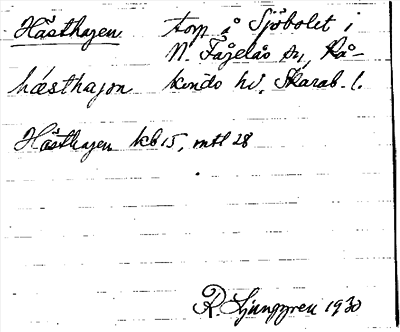 Hästhagen torp å Sjöbolet i
N. Fågelås sn, Kå-
hǽsthajən kinds hd, Skarab. l.
Hästhagen kb 15, mtl 28
R. Ljunggren 1930